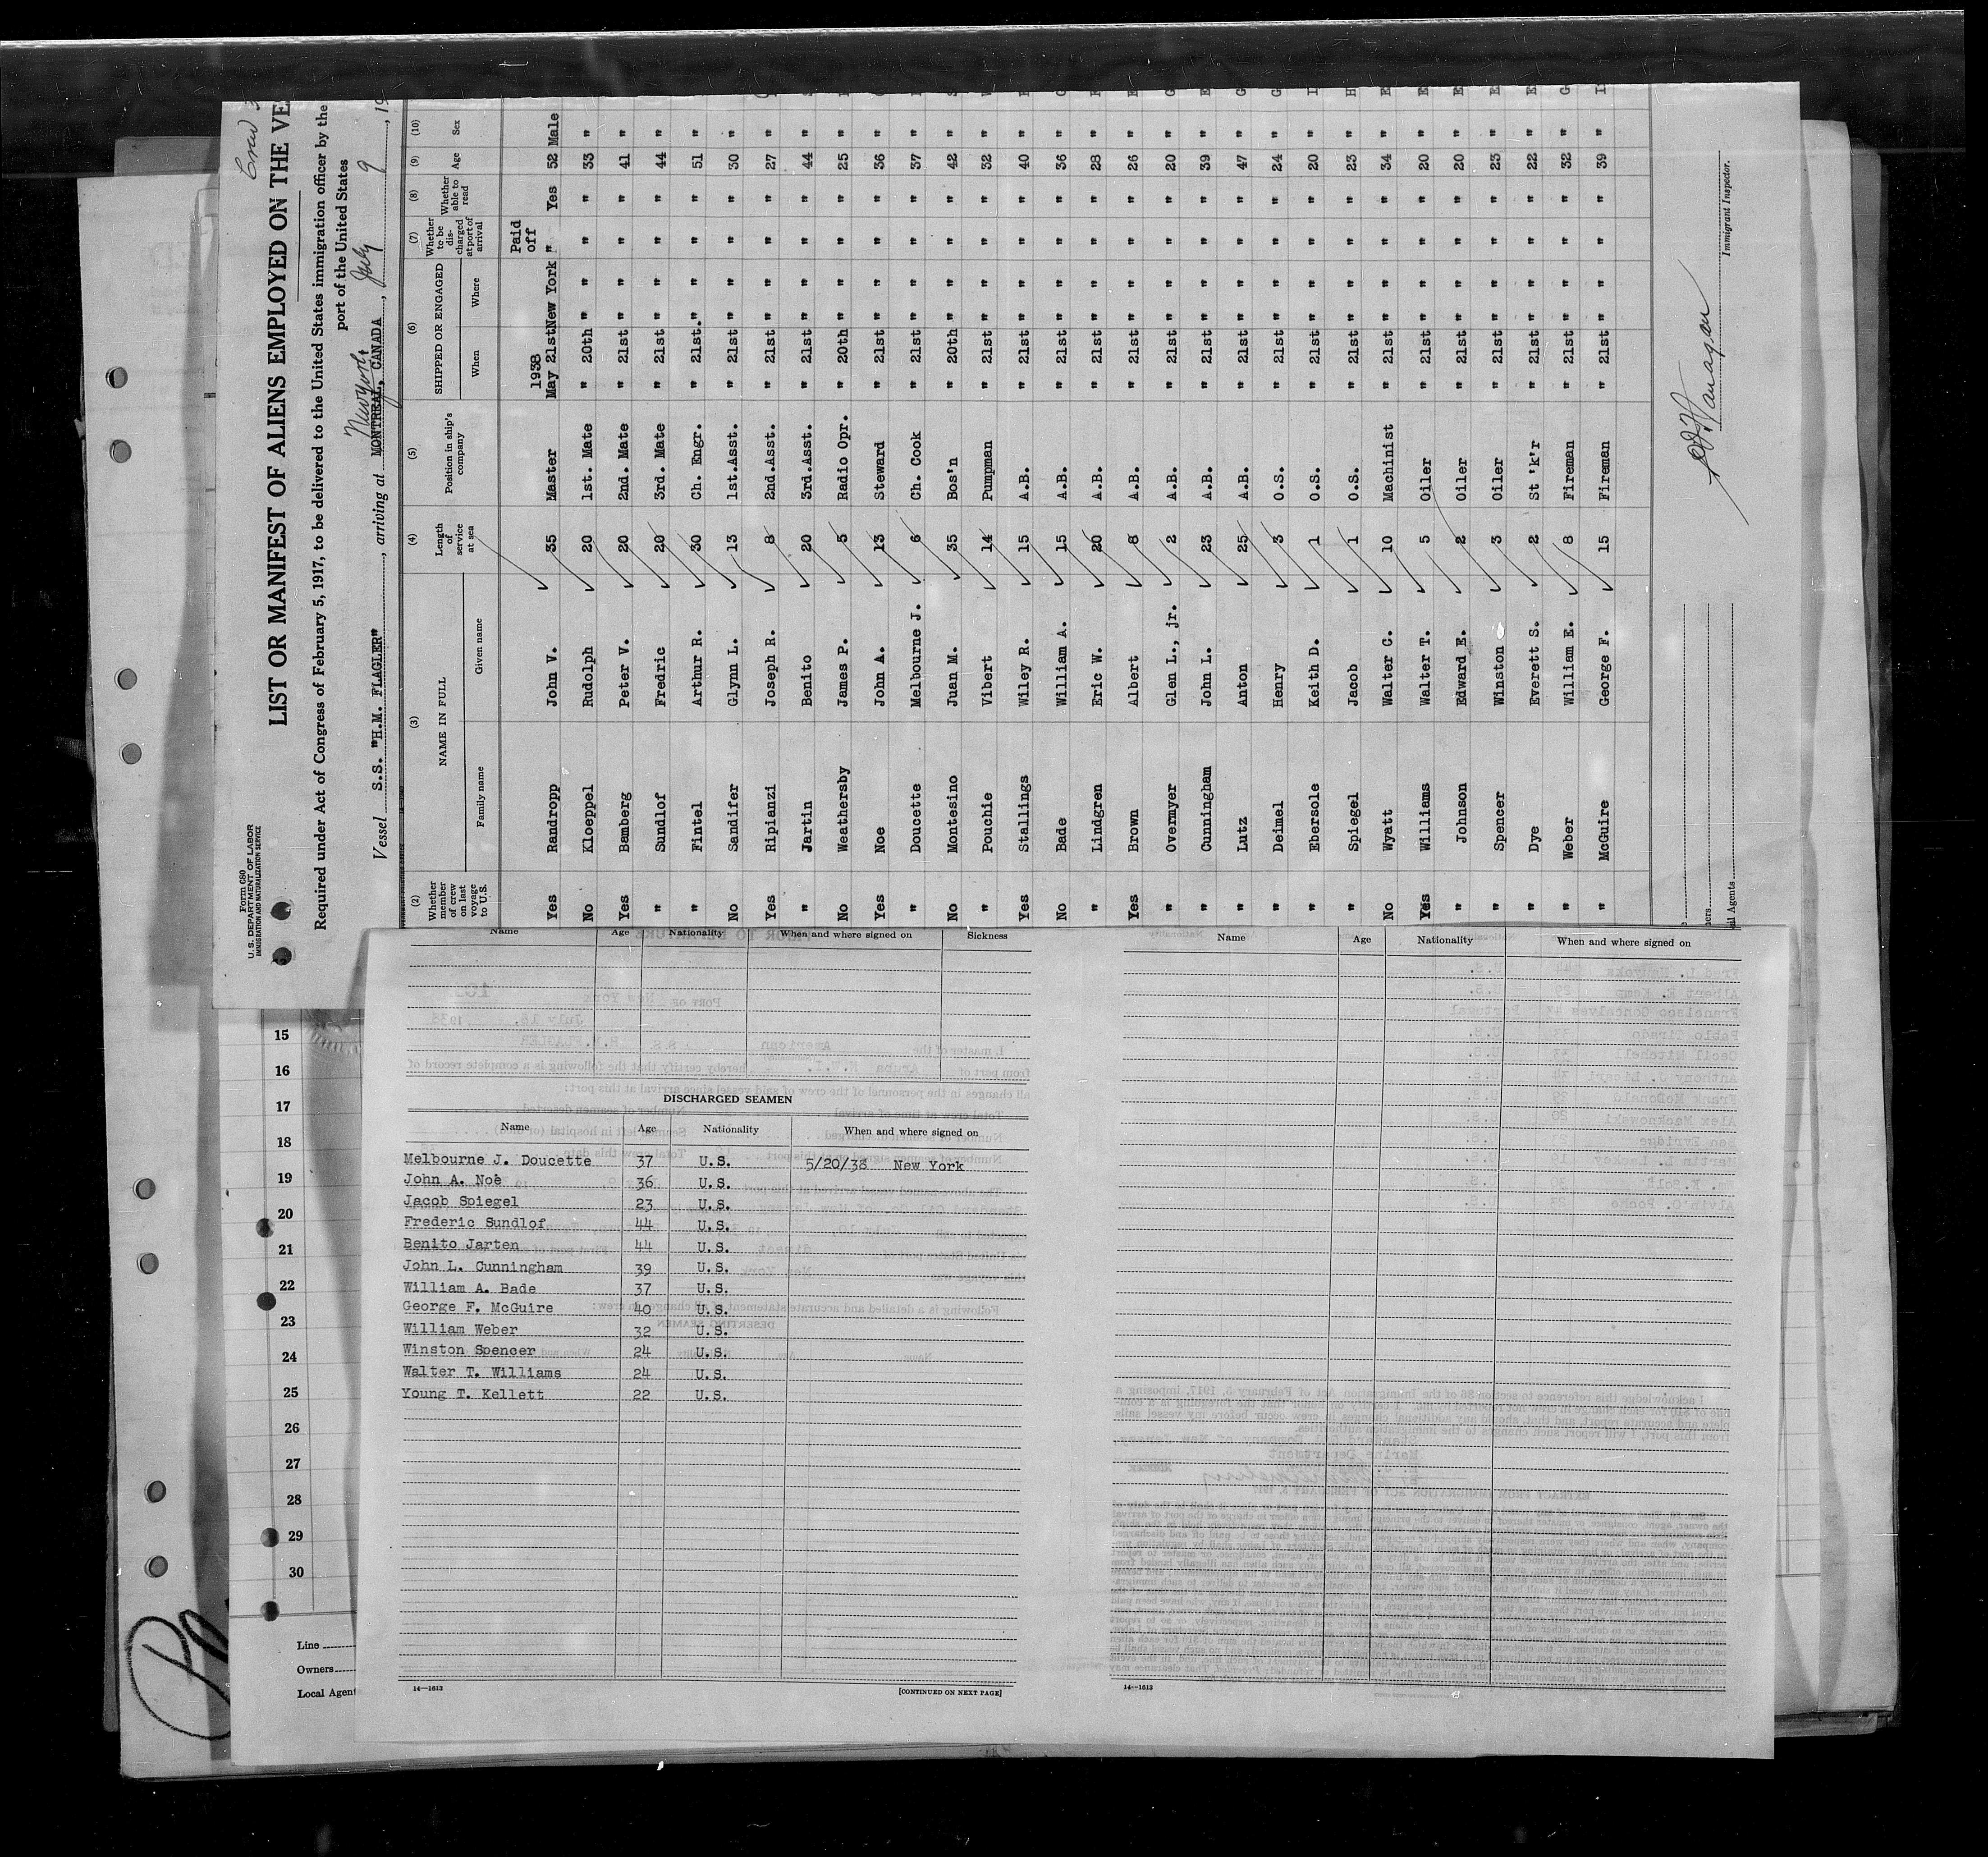 Form 680
U. S. DEPARTMENT OF LABOR
IMMIGRATION AND NATURALIZATION SERVICE
Crew 3
LIST OR MANIFEST OF ALIENS EMPLOYED ON THE VE
Required under Act of Congress of February 5, 1917, to be delivered to the United States immigration officer by the
port of the United States
Vessel S.S. "H.M. FLAGLER", arriving at MONTREAL, CANADA New York, July 9, 19
(2) (3) (4) (5) (6) (7) (8) (9) (10)
Whether member of crew on last voyage to U.S. NAME IN FULL Length of service at sea Position in ship's company SHIPPED OR ENGAGED Whether to be discharged at port of arrival Whether able to read Age Sex
Family name Given name When Where
1938 Paid off
Yes Randropp John V. 35 Master May 21st New York " Yes 52 Male
No Kloeppel Rudolph 20 1st. Mate " 20th " " " " 33 "
Yes Bamberg Peter V. 20 2nd. Mate " 21st " " " " 41 "
" Sundlof Fredric 20 3rd. Mate " 21st " " " " 44 "
" Fintel Arthur R. 30 Ch. Engr. " 21st. " " " " 51 "
No Sandifer Glynn L. 13 1st.Asst. " 21st " " " " 30 "
Yes Ripianzi Joseph R. 8 2nd.Asst. " 21st " " " " 27 "
" Jartin Benito 20 3rd.Asst. " 21st " " " " 44 "
No Weathersby James P. 5 Radio Opr. " 20th " " " " 25 "
Yes Noe John A. 13 Steward " 21st " " " " 36 "
" Doucette Melbourne J. 6 Ch. Cook " 21st " " " " 37 "
No Montesino Juan M. 35 Bos'n " 20th " " " " 42 "
" Pouchie Vibert 14 Pumpman " 21st " " " " 32 "
Yes Stallings Wiley R. 15 A.B. " 21st " " " " 40 "
No Bade William A. 15 A.B. " 21st " " " " 36 "
" Lindgren Eric W. 20 A.B. " 21st " " " " 28 "
Yes Brown Albert 8 A.B. " 21st " " " " 26 "
" Overmyer Glen L., jr. 2 A.B. " 21st " " " " 20 "
" Cunningham John L. 23 A.B. " 21st " " " " 39 "
" Lutz Anton 25 A.B. " 21st " " " " 47 "
" Deimel Henry 3 O.S. " 21st " " " " 24 "
" Ebersole Keith D. 1 O.S. " 21st " " " " 20 "
" Spiegel Jacob 1 O.S. " 21st " " " " 23 "
No Wyatt Walter C. 10 Machinist " 21st " " " " 34 "
Yes Williams Walter T. 5 Oiler " 21st " " " " 20 "
" Johnson Edward E. 2 Oiler " 21st " " " " 20 "
" Spencer Winston 3 Oiler " 21st " " " " 23 "
" Dye Everett S. 2 St'k'r " 21st " " " " 22 "
" Weber William E. 8 Fireman " 21st " " " " 32 "
" McGuire George F. 15 Fireman " 21st " " " " 39 "
Immigrant Inspector.
Name Age Nationality When and where signed on Sickness
DISCHARGED SEAMEN
Name Age Nationality When and where signed on
Melbourne J. Doucette 37 U.S. 5/20/38 New York
John A. Noe 36 U.S.
Jacob Spiegel 23 U.S.
Frederic Sundlof 44 U.S.
Benito Jarten 44 U.S.
John L. Cunningham 39 U.S.
William A. Bade 37 U.S.
George F. McGuire 40 U.S.
William Weber 32 U.S.
Winston Spencer 24 U.S.
Walter T. Williams 24 U.S.
Young T. Kellett 22 U.S.
14—1613 [CONTINUED ON NEXT PAGE]
Name Age Nationality When and where signed on
14—1613
15
16
17
18
19
20
21
22
23
24
25
26
27
28
29
30
Line
Owners
Local Agent